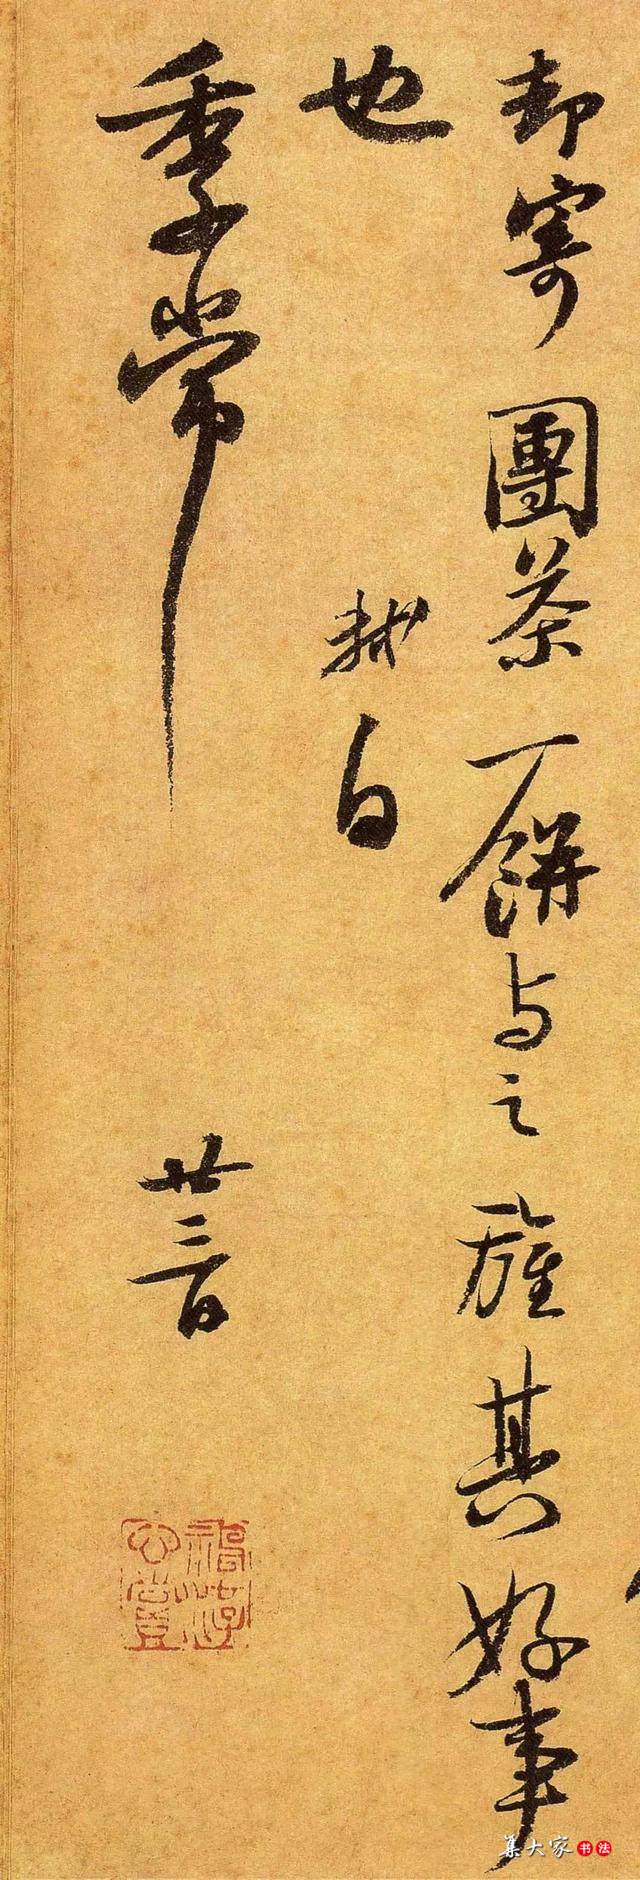 却寄團茶一餅与之旌其好事
也 軾白
季常 廿三日
集大家书法